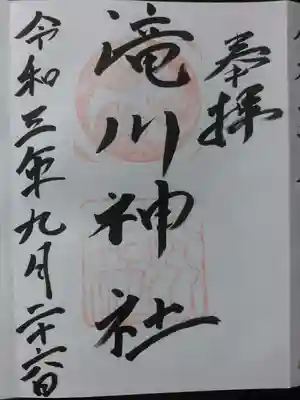 奉拝
滝川神社
令和三年九月二十六日